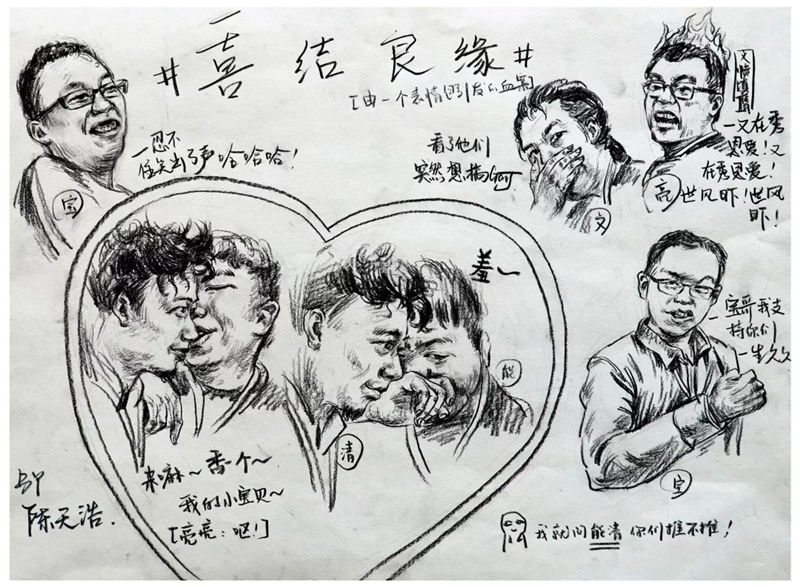 #喜结良缘#
[由一个表情包引发的血案]
一忍不
住笑出了声哈哈哈!
宝
看了他们
突然想搞Gay
文
亮
一又在秀
恩爱!又
在秀恩爱!
世风吓!世风
吓!
羞~
能
清
来嘛~香一个~
我的小宝贝~
[亮亮:呕!]
宝哥我支
持你们
一生久久
宝
BY
陈天浩.
我就问能清你们推不推!